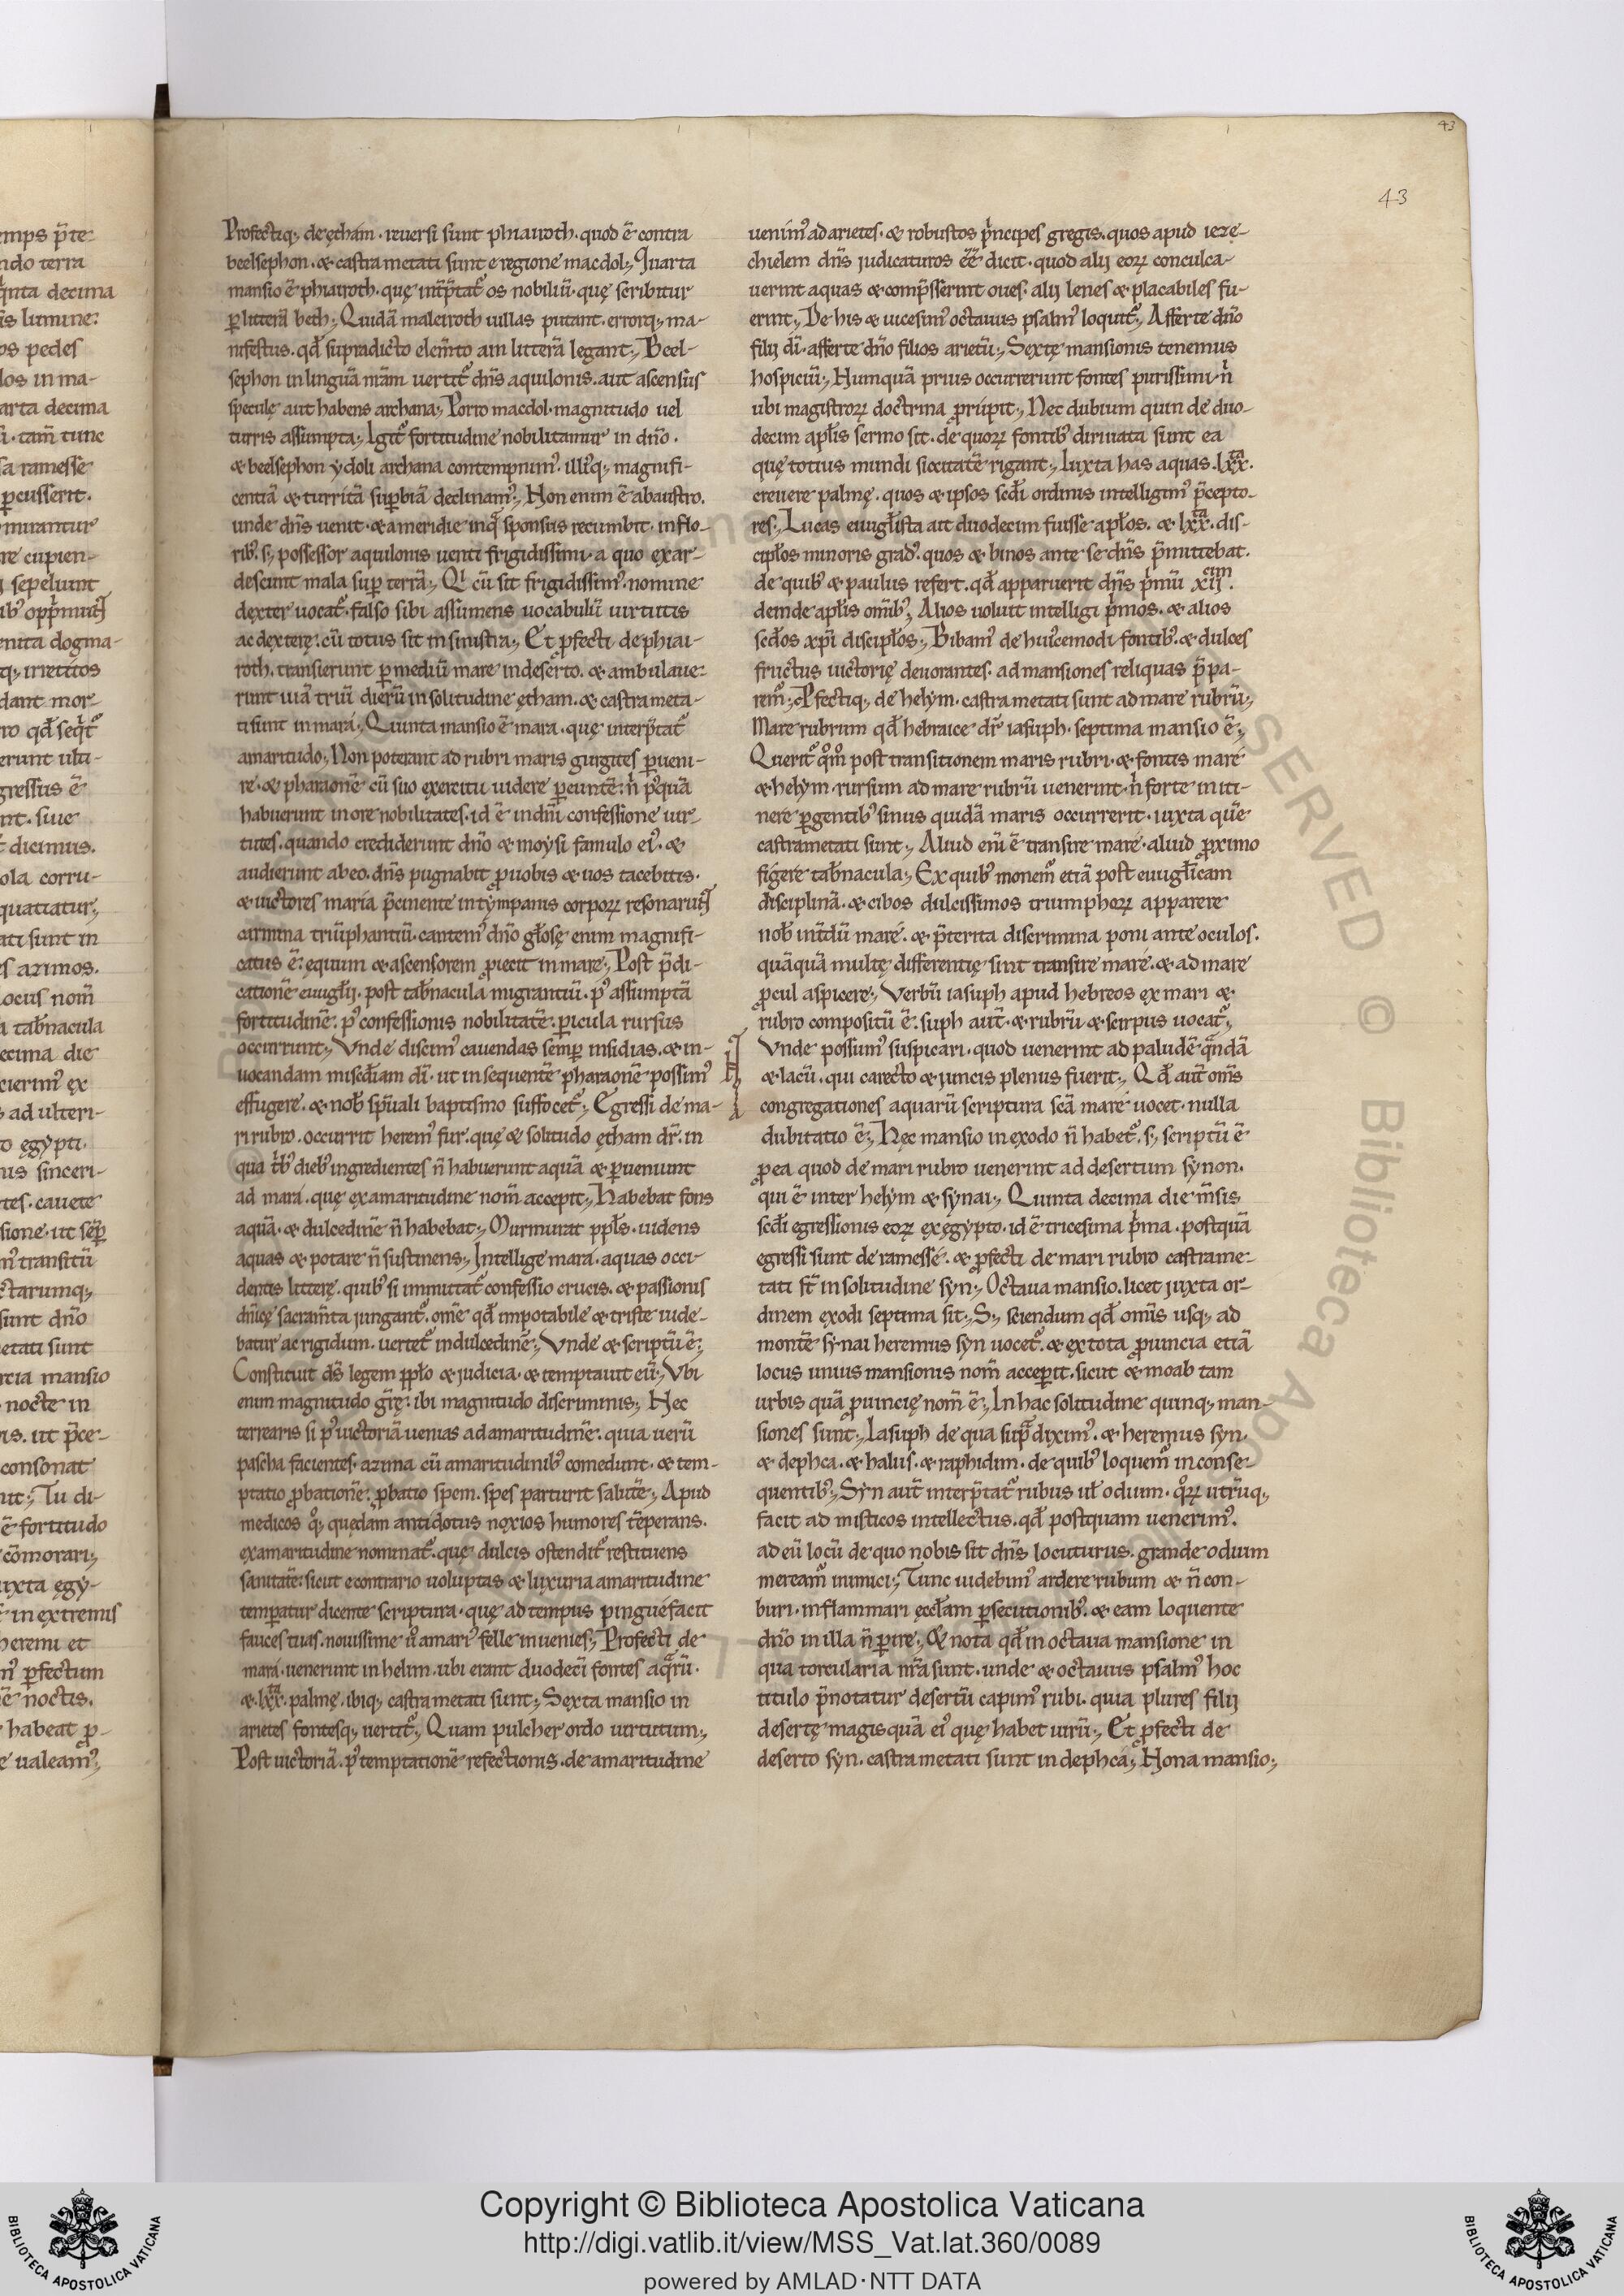 43
43
Profectiq; de ęthám. reuersi sunt phiairoth. quod ē contra
beelsephon. & castra metati sunt e regione macdol; Quarta
mansio ē phiairoth. quę int̄p̄tat᷑ os nobiliū. quę scribitur
ꝑ litterā heth; Quidā maleiroth uillas putant. errorq; ma-
nifestus. qđ supradicto elem̄to ain litterā legant; Beel-
sephon in linguā nr̄am uertit᷑ dn̄s aquilonis. aut ascensus
speculę aut habens archana; Porro macdol. magnitudo uel
turris assumpta; Igit᷑ fortitudine nobilitamur in dn̄o.
& beelsephon ydoli archana contempnimꝰ. illiꝰq; magnifi-
centiā & turritā suꝑbiā declinamꝰ; Non enim ē ab austro.
unde dn̄s uenit. & a meridie in qͣ sponsus recumbit. in flo-
ribꝰ. s; possessor aquilonis uenti frigidissimi. a quo ęxar-
descunt mala suꝑ terrā; Qͥ cū sit frigidissimꝰ. nomine
dęxter uocat᷑. falso sibi assumens uocabulū uirtutis
ac dęxterę. cū totus sit in sinistra; Et ꝓfecti de phiai-
roth. transierunt ꝑ mediū mare in deserto. & ambulaue-
runt uiā triū dierū in solitudine ętham. & castra meta-
ti sunt in mará; Quinta mansio ē mara. quę interp̄tat᷑
amaritudo; Non poterant ad rubri maris gurgites ꝑueni-
re. & pharaonē cū suo ęxercitu uidere ꝑeuntē. n̄ pꝰquā
habuerunt in ore nobilitates. id ē in dn̄i confessione uir-
tutes. quando crediderunt dn̄o & moysi famulo eiꝰ. &
audierunt ab eo. dn̄s pugnabit ꝓ uobis & uos tacebitis.
& uictores maria p̄cinente in tympanis corpoꝝ resonarunt
carmina triūphantiū. cantemꝰ dn̄o głosę enim magnifi-
catus ē. equum & ascensorem ꝓiecit in mare; Post p̄di-
cationē euuglij. post tab̄nacula migrantiū. pꝰ assumptā
fortitudinē. pꝰ confessionis nobilitatē. ꝑicula rursus
occurrunt; Vnde discimꝰ cauendas semꝑ insidias. & in-
uocandam mis̄cđiam dī. ut insequentē pharaonē possimꝰ
effugere. & nob̄ sp̄uali baptismo suffocet᷑; Egressi de ma-
ri rubro. occurrit heremꝰ sur. quę & solitudo ętham dr̄. in
qua tͥbꝰ diebꝰ ingredientes n̄ habuerunt aquā & ꝑuenient
ad mará. quę ex amaritudine nom̄ accepit; Habebat fons
aquā. & dulcedinē n̄ habebat; Murmurat ppłs. uidens
aquas & potare n̄ sustinens; Intellige mará. aquas occi-
dentis litterę. quibꝰ si inmittat᷑ confessio crucis. & passionis
dn̄icę sacram̄ta iungant᷑. om̄e qđ impotabile & triste uide-
batur ac rigidum. uertet᷑ in dulcedinē; Vnde & scriptū ē;
Constituit ds̄ legem ppło & judicia. & temptauit eū; Vbi
enim magnitudo gr̄ę. ibi magnitudo discriminis; Nec
terrearis si pꝰ uictoriā uenias ad amaritudinē. quia uerū
pascha facientes. azima cū amaritudinibꝰ comedunt. & tem-
ptatio ꝓbationē. ꝓbatio spem. spes parturit salutē; Apud
medicos qͦ; quędam antidotus nęxios humores tēperans.
ex amaritudine nominat᷑. quę dulcis ostendit᷑ restituens
sanitatē. sicut econtrario uoluptas & luxuria amaritudine
temperatur dicente scriptura. quę ad tempus pinguefacit
fauces tuas. nouissime ů amariꝰ felle inuenies; Profecti de
mará. uenerunt in helim. ubi erant duodecī fontes aqͣrū.
& lxxͭᵃ. palmę. ibiq; castra metati sunt; Sęxta mansio in
arietes fontesq; uertit᷑; Quam pulcher ordo uirtutum;
Post uictoriā. pꝰ temptationē refectionis. de amaritudine
uenimꝰ ad arietes. & robustos pͥncipes gregis. quos apud iezę-
chielem dn̄s judicaturos ēē dicit. quod alij eoꝝ conculca-
uerint aquas & comp̄sserint oues. alij lenes & placabiles fu-
erint; De his & uicesimꝰ octauus psalmꝰ loquit᷑; Afferte dn̄o
filij dī. afferte dn̄o filios arietū; Sęxtę mansionis tenemus
hospiciū; Numquā prius occurrerunt fontes purissimi. nͥ
ubi magistroꝝ doctrina ꝓrupit; Nec dubium quin de duo-
decim apłis sermo sit. de quoꝝ fontibꝰ diriuata sunt ea
quę totius mundi siccitatē rigant; Iuxta has aquas. lxxͭᵃ.
creuere palmę. quos & ipsos scđi ordinis intelligimꝰ p̄cepto-
res; Lucas euuglista ait duodecim fuisse apłos. & lxxͭᵃ. dis-
cipłos minoris gradꝰ. quos & binos ante se dn̄s p̄mittebat.
de quibꝰ & paulus refert. qđ apparuerit dn̄s pͥmū xijᶜⁱᵐ.
deinde apłis om̄ibꝰ; Alios uoluit intelligi pͥmos. & alios
scđos xp̄i discipłos; Bibamꝰ de huꝰcemodi fontibꝰ. & dulces
fructus uictorię deuorantes. ad mansiones reliquas p̄pa-
rem᷑; Ꝓfectiq; de helym. castra metati sunt ad mare rubrū;
Mare rubrum qđ hebraice dr̄ iasuph. septima mansio ē;
Querit᷑ qͦm̊ post transitionem maris rubri. & fontis mare
& helym. rursum ad mare rubrū uenerint. nͥ forte in iti-
nere ꝑgentibꝰ sinus quidā maris occurrerit. iuxta quē
castrametati sunt; Aliud eni ē transire maré. aliud ꝓximo
figere tab̄nacula; Ex quibꝰ monem᷑ etiā post euuglicam
disciplinā. & cibos dulcissimos triumphoꝝ apparere
nob̄ int̄dū maré. & p̄terita discrimina poni ante oculos.
quāquā multę differentię sint transire maré. & ad mare
ꝓcul aspicere; Verbū iasuph apud hebreos ęx mari &
rubro compositū ē. suph aut̄. & rubrū & scirpus uocat᷑;
Vnde possumꝰ suspicari. quod uenerint ad paludē qͣndā
& lacū. qui carecto & juncis plenus fuerit; Qđ aut̄ om̄s
congregationes aquarū scriptura scā maré uocet. nulla
dubitatio ē; Nęc mansio in exodo n̄ habet᷑. s; scriptū ē
ꝓ ea quod de mari rubro uenerint ad desertum synon.
qui ē inter helym & synai; Quinta decima die m̄sis
scđi egressionis eoꝝ ęx ęgypto. id ē tricesima pͥma. postquā
egressi sunt de ramessé. & ꝓfecti de mari rubro castrame-
tati st̄ in solitudine syn; Octaua mansio. licet juxta or-
dinem exodi septima sit; S; sciendum qđ om̄is usq; ad
montē synai heremus syn uocet᷑. & ęx tota ꝓuincia etiā
locus unius mansionis nom̄ acceperit. sicut & moab tam
urbis quā ꝓuincię nom̄ ē; In hac solitudine quinq; man-
siones sunt; Iasuph de qua supͣ diximꝰ. & heremus syn.
& dephca. & halus. & raphidim. de quibꝰ loquem᷑ in conse-
quentibꝰ; Syn aut̄ interp̄tat᷑ rubus uł odium. qͦꝝ utrūq;
facit ad misticos intellectus. qđ postquam uenerimꝰ.
ad eū locū de quo nobis sit dn̄s locuturus. grande odium
meream᷑ inimici; Tunc uidebimꝰ ardere rubum & n̄ con-
buri. inflammari ęccłam ꝑsecutionibꝰ. & eam loquente
dn̄o in illa n̄ ꝑire; & nota qđ in octaua mansione in
qua torcularia nr̄a sunt. unde & octauus psalmꝰ hoc
titulo p̄notatur desertū capimꝰ rubi. quia plures filij
desertę magis quā eiꝰ quę habet uirū; Et ꝓfecti de
deserto syn. castra metati sunt in dephcá; Nona mansio;
Copyright © Biblioteca Apostolica Vaticana
http://digi.vatlib.it/view/MSS_Vat.lat.360/0089
powered by AMLAD·NTT DATA